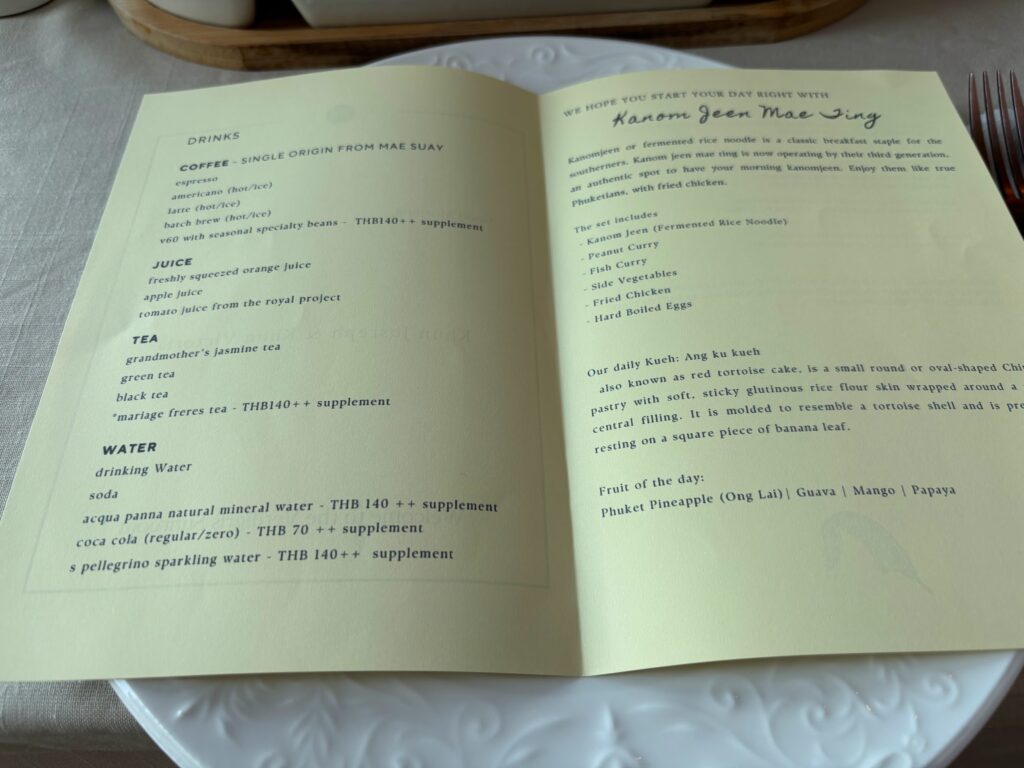 DRINKS
COFFEE - SINGLE ORIGIN FROM MAE SUAY
espresso
americano (hot/ice)
latte (hot/ice)
batch brew (hot/ice)
v60 with seasonal specialty beans - THB140++ supplement
JUICE
freshly squeezed orange juice
apple juice
tomato juice from the royal project
TEA
grandmother's jasmine tea
green tea
black tea
*mariage freres tea - THB140++ supplement
WATER
drinking Water
soda
acqua panna natural mineral water - THB 140 ++ supplement
coca cola (regular/zero) - THB 70 ++ supplement
s pellegrino sparkling water - THB 140++ supplement
WE HOPE YOU START YOUR DAY RIGHT WITH
Kanom Jeen Mae Ting
Kanomjeen or fermented rice noodle is a classic breakfast staple for the
southerners. Kanom jeen mae ting is now operating by their third generation,
an authentic spot to have your morning kanomjeen. Enjoy them like true
Phuketians, with fried chicken.
The set includes
- Kanom Jeen (Fermented Rice Noodle)
- Peanut Curry
- Fish Curry
- Side Vegetables
- Fried Chicken
- Hard Boiled Eggs
Our daily Kueh: Ang ku kueh
also known as red tortoise cake, is a small round or oval-shaped Chi
pastry with soft, sticky glutinous rice flour skin wrapped around a
central filling. It is molded to resemble a tortoise shell and is pre
resting on a square piece of banana leaf.
Fruit of the day:
Phuket Pineapple (Ong Lai)| Guava | Mango | Papaya